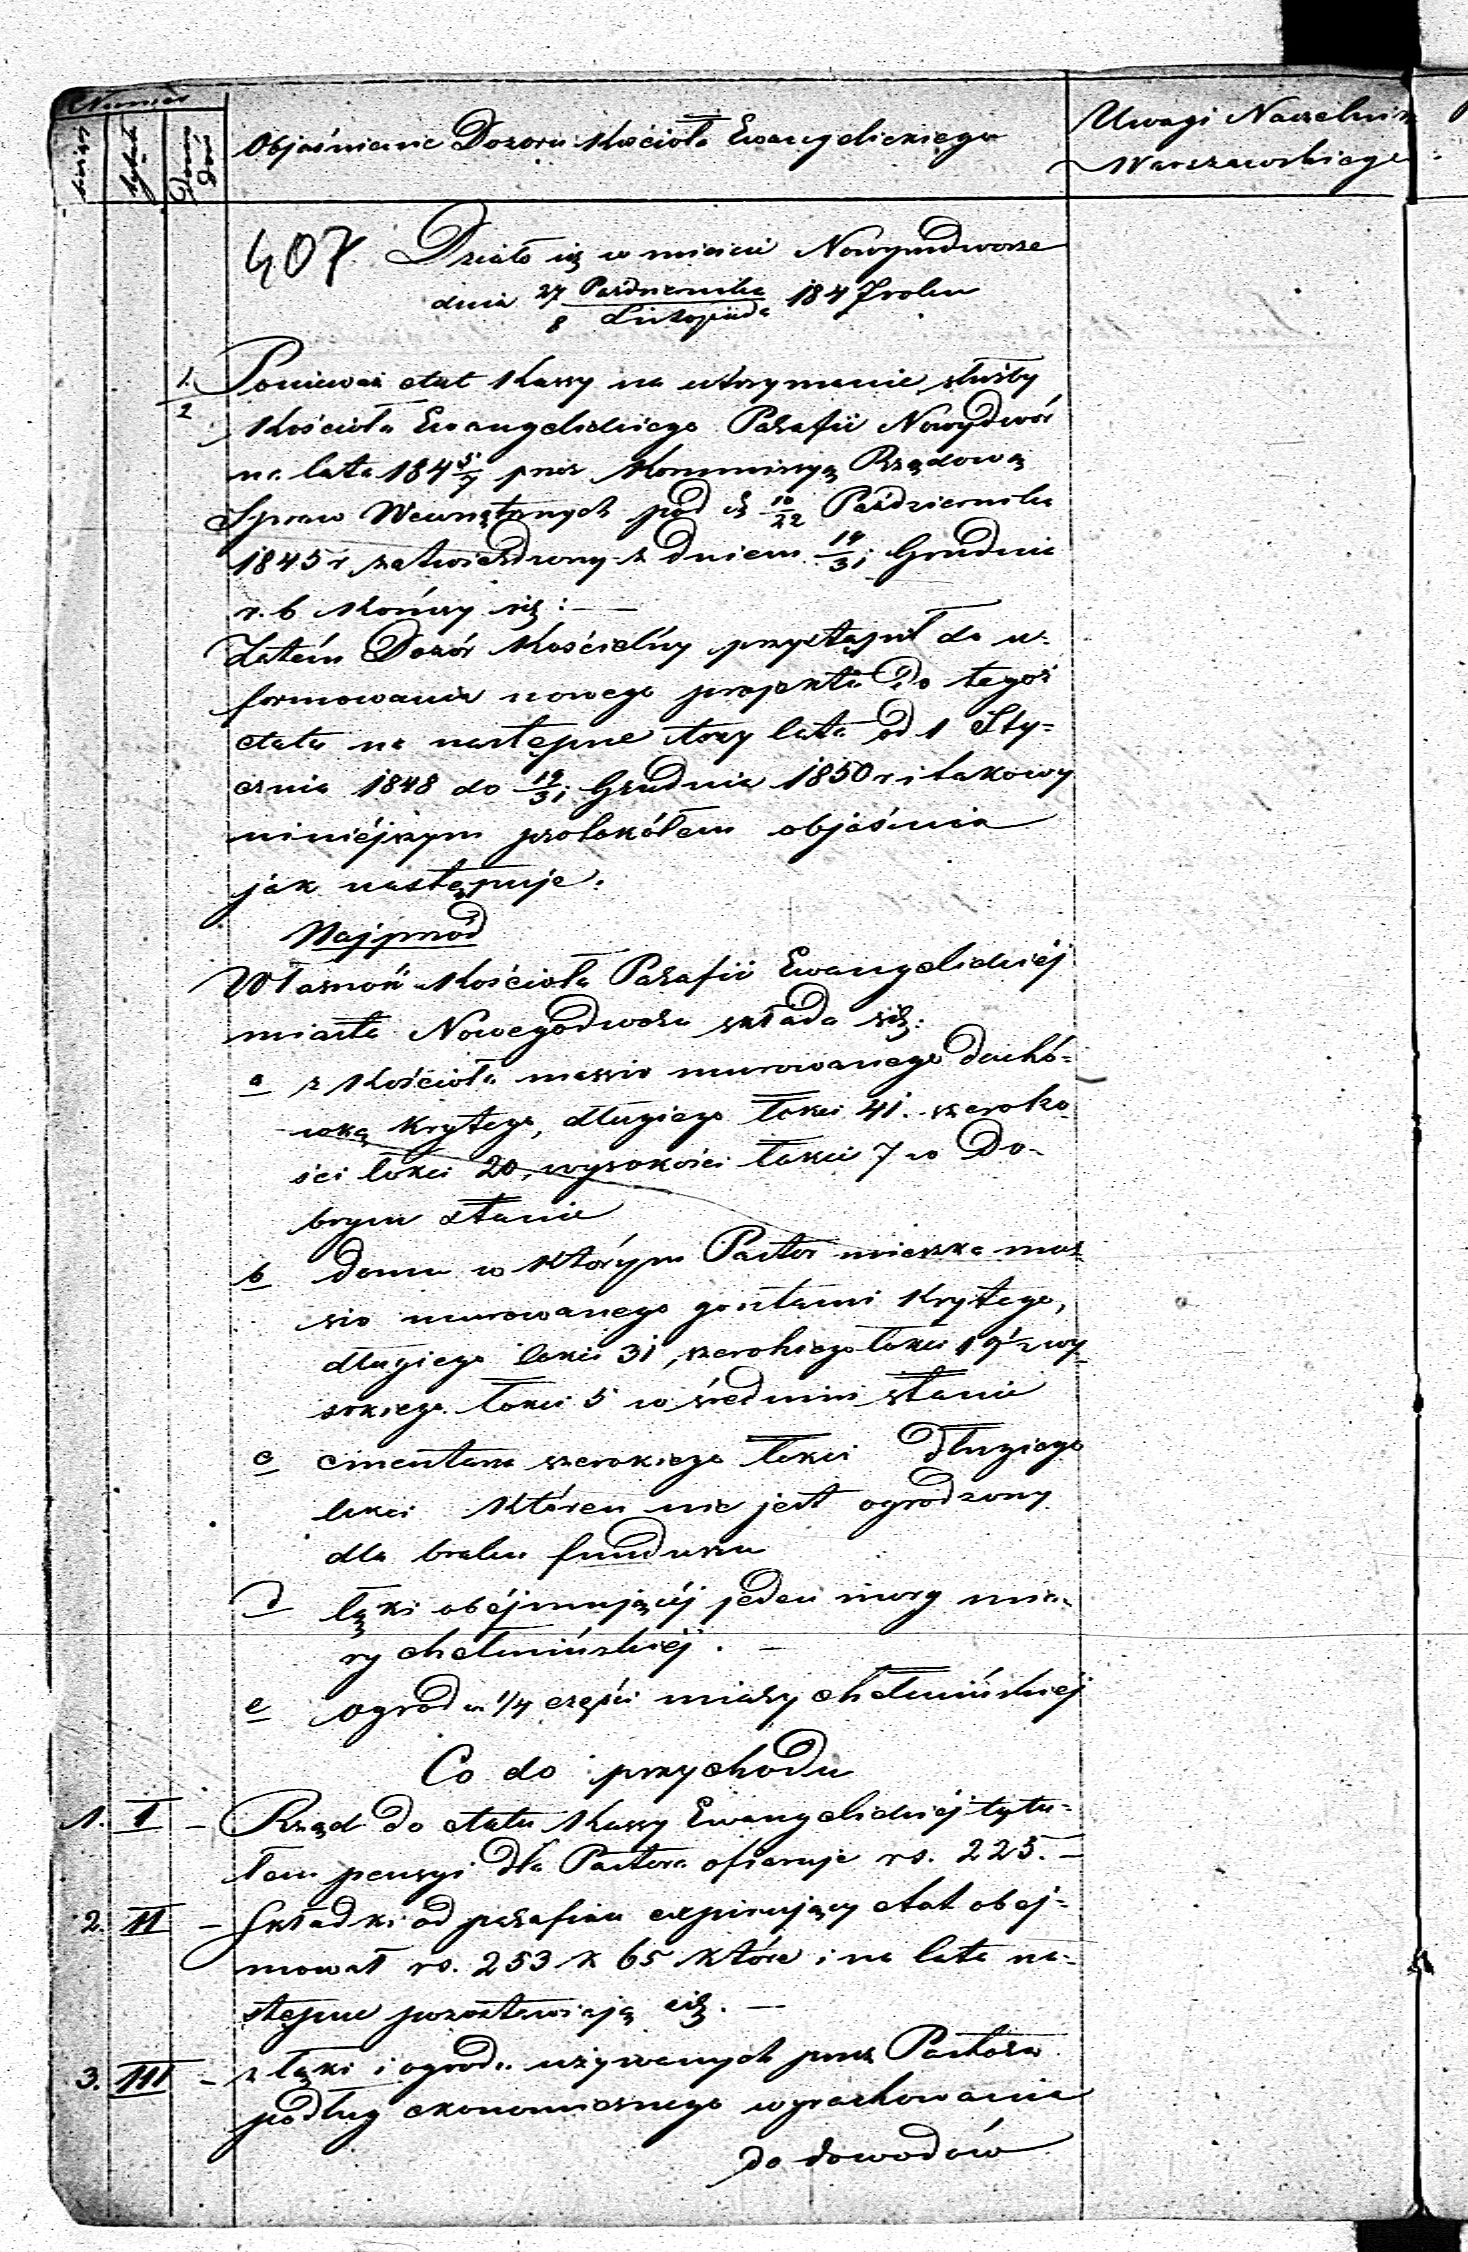 Numer
bieżący
tytułu
Dowodów
Objaśnienie Dozoru Kościoła Ewangelickiego
Uwagi Naczelnik
Warszawskiego
407. Działo się w mieście Nowymdworze
dnia 27 Października / 8 Listopada 1847 roku
1/2 Ponieważ etat Kassy na utrzymanie służby
Kościoła Ewangelickiego Parafii Nowydwór
na lata 184 5/7 przez Kommissyą Rządową
Spraw Wewnętrznych pod d 10/22 Października
1845 r zatwierdzony z dniem 19/31 Grudnia
r. b kończy się: —
Zatém Dozór Kościelny przystąpił do u-
formowania nowego projektu do tegoż
etatu na następne trzy lata od 1 Sty-
cznia 1848 do 19/31 Grudnia 1850 r i takowy
niniéjszym protokółem objaśnia
jak następuje:
Najprzód
Własność Kościoła Parafii Ewangelickiéj
miasta Nowegodworu składa się:
a z Kościoła massiv murowanego dachó-
wką krytego, długiego łokci 41. szeroko
ści łokci 20, wysokości łokci 7 w do-
brym stanie
b domu w którym Pastor mieszka mas
siv murowanego gontami krytego,
długiego łokci 31, szerokiego łokci 19 1/2 wy
sokiego łokci 5 w średnim stanie
c cmentarza szerokiego łokci długiego
łokci któren nie jest ogrodzony
dla braku funduszu
d łąki obéjmującéj jeden morg mia-
ry chełmińskiéj. —
e ogrodu 1/4 części miary chełmińskiéj
Co do przychodu
1. I — Rząd do etatu Kassy Ewangelickiéj tytu-
łem pensyi dla Pastora ofiaruje rs. 225. —
2. II — Składki od parafian expirujący etat obej-
mował rs. 253 k 65 które i na lata na-
stępne pozostawiają się. —
3. III — z łąki i ogrodu używanych przez Pastora
podług ekonomicznego wyrachowania
do dowodów